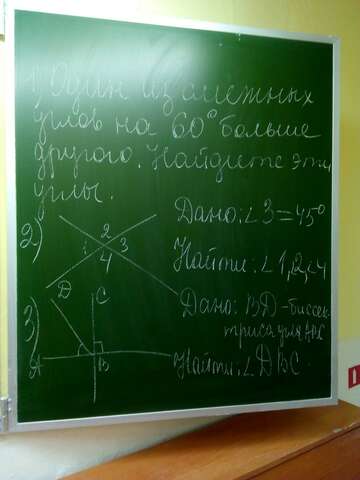 1) Один из смежных
углов на 60° больше
другого. Найдите эти
углы.
2)
1 2 3
4
Дано: ∠3=45°
Найти: ∠1,2,∠4
3)
D C
A B
Дано: BD-биссек-
триса угла ABC
Найти: ∠DBC